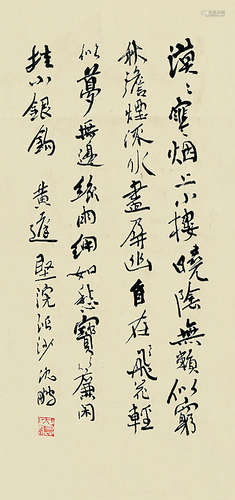 漠〻寒烟上小樓曉陰無賴似窮
秋澹煙流水畫屏幽自在飛花輕
似夢無邊絲雨細如愁寶簾閑
挂小銀鉤 黄庭堅浣溪沙 沈鵬